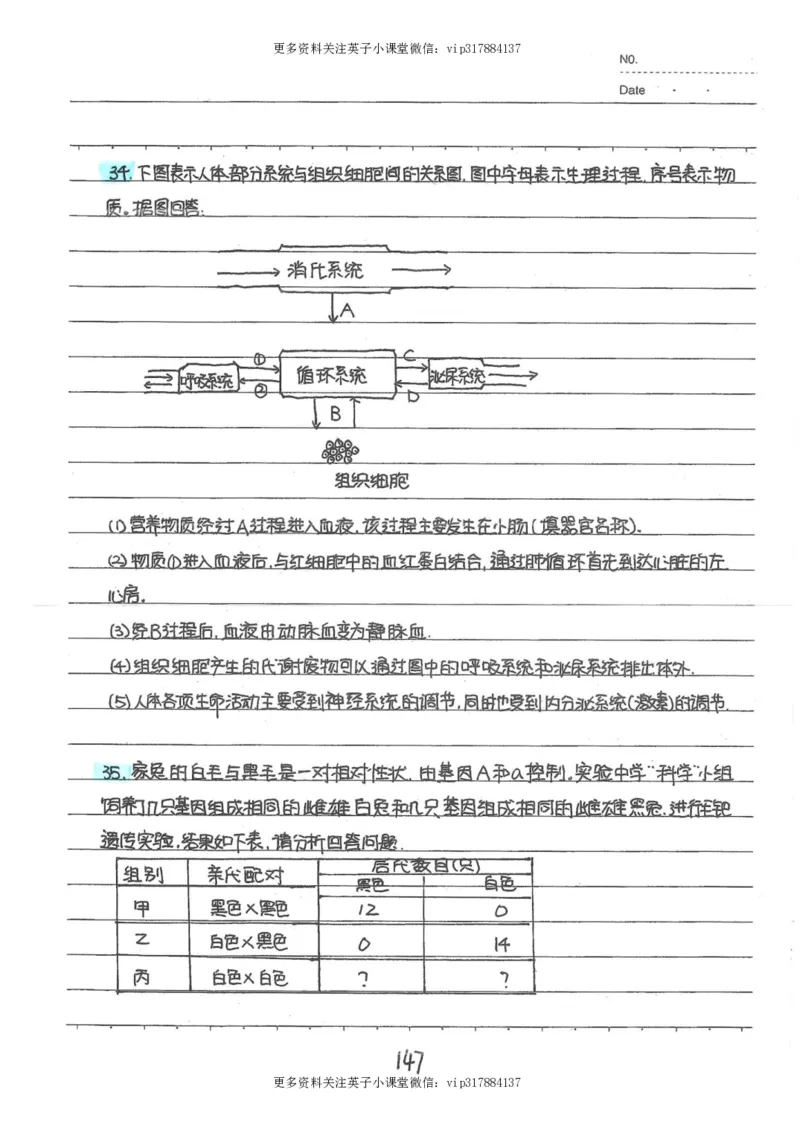 更多资料关注英子小课堂微信：vip317884137
NO.
Date
34. 下图表示人体部分系统与组织细胞间的关系图，图中字母表示生理过程，序号表示物
质。据图回答：
消化系统
A
① C
呼吸系统 循环系统 泌尿系统
② D
B
组织细胞
(1)营养物质经过A过程进入血液，该过程主要发生在小肠(填器官名称)。
(2)物质①进入血液后，与红细胞中的血红蛋白结合，通过肺循环首先到达心脏的左
心房。
(3)经B过程后，血液由动脉血变为静脉血.
(4)组织细胞产生的代谢废物可以通过图中的呼吸系统和泌尿系统排出体外.
(5)人体各项生命活动主要受到神经系统的调节，同时也受到内分泌系统(激素)的调节.
35. 家兔的白毛与黑毛是一对相对性状，由基因A和a控制。实验中学“科学”小组
饲养了几只基因组成相同的雌雄白兔和几只基因组成相同的雌雄黑兔，进行毛色
遗传实验，结果如下表，请分析回答问题.
组别 亲代配对 后代数目(只)
黑色 白色
甲 黑色×黑色 12 0
乙 白色×黑色 0 14
丙 白色×白色 ? ?
147
更多资料关注英子小课堂微信：vip317884137